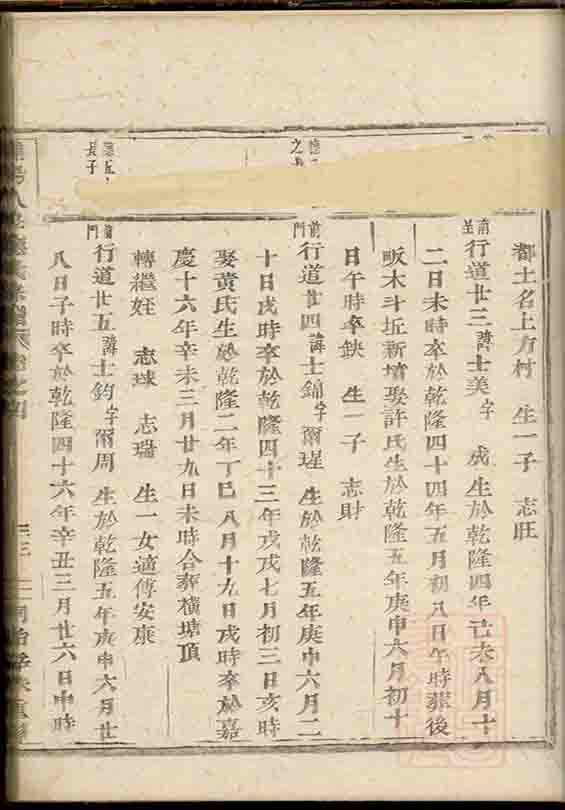 都土名上方村 生一子 志旺
行道廿三諱士美字 成生於乾隆四年己未八月十
二日未時卒於乾隆四十四年五月初八日午時葬後
畈木斗坵新墳娶許氏生於乾隆五年庚申六月初十
日午時卒缺 生一子 志財
前門
行道廿四諱士錦字爾瑆 生於乾隆五年庚申六月二
十日戌時卒於乾隆四十三年戊戌七月初三日亥時
娶黃氏生於乾隆二年丁巳八月十九日戌時卒於嘉
慶十六年辛未三月廿九日未時合葬橫塘頂
轉繼姪 志球 志瑞 生一女適傅安康
長子
前門
行道廿五諱士鈞字爾周 生於乾隆五年庚申六月廿
八日子時卒於乾隆四十六年辛丑三月廿六日申時